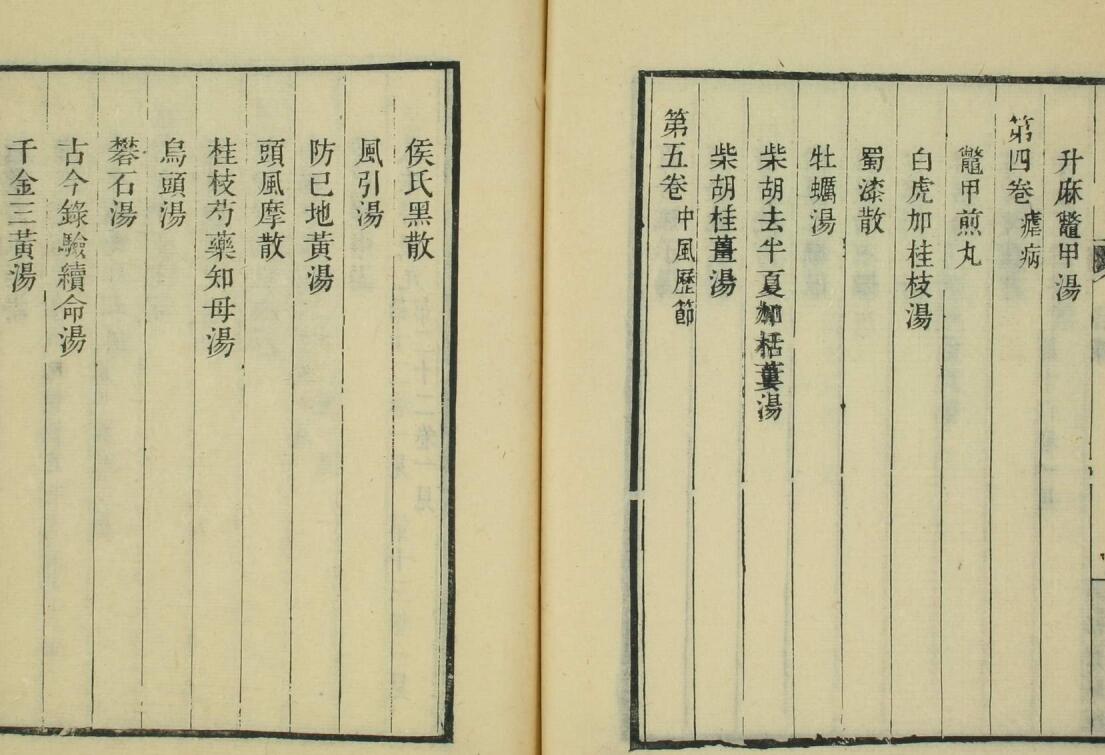 升麻鼈甲湯
第四卷 瘧病
鼈甲煎丸
白虎加桂枝湯
蜀漆散
牡蠣湯
柴胡去半夏加栝蔞湯
柴胡桂薑湯
第五卷 中風歷節
侯氏黑散
風引湯
防已地黃湯
頭風摩散
桂枝芍藥知母湯
烏頭湯
礬石湯
古今錄驗續命湯
千金三黃湯